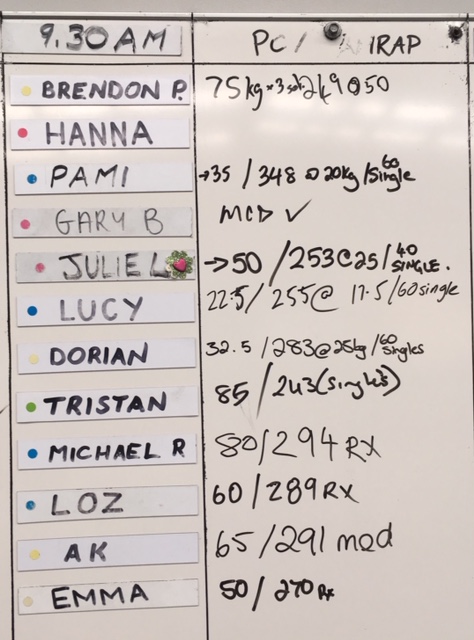 9.30AM PC/ IRAP
BRENDON P. 75kg × 3 249@50
HANNA
PAMI →35 / 348 20kg /60 single
GARY B MCD ✓
JULIE L →50 /253@25/40 SINGLE.
LUCY 22.5/ 255@ 17.5/60single
DORIAN 32.5 /283@25kg/60 singles
TRISTAN 85 /243(singles)
MICHAEL R 80/294 RX
LOZ 60/289 RX
AK 65/291 mod
EMMA 50/ 270 Rx